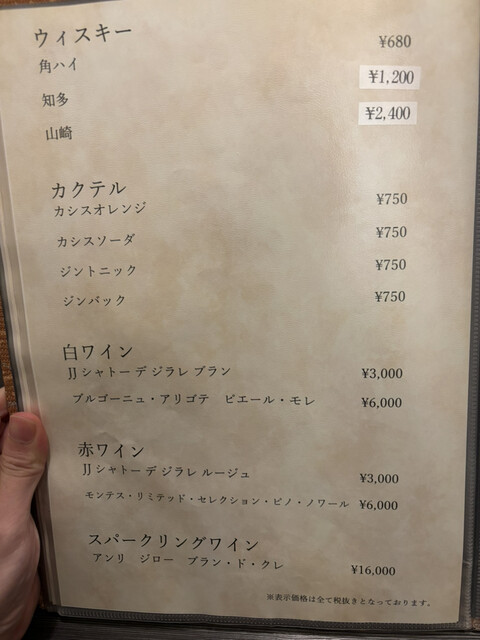 ウィスキー
角ハイ ¥680
知多 ¥1,200
山崎 ¥2,400
カクテル
カシスオレンジ ¥750
カシスソーダ ¥750
ジントニック ¥750
ジンバック ¥750
白ワイン
JJ シャトー デ ジラレ ブラン ¥3,000
ブルゴーニュ・アリゴテ ピエール・モレ ¥6,000
赤ワイン
JJ シャトー デ ジラレ ルージュ ¥3,000
モンテス・リミテッド・セレクション・ピノ・ノワール ¥6,000
スパークリングワイン
アンリ ジロー ブラン・ド・クレ ¥16,000
※表示価格は全て税抜きとなっております。